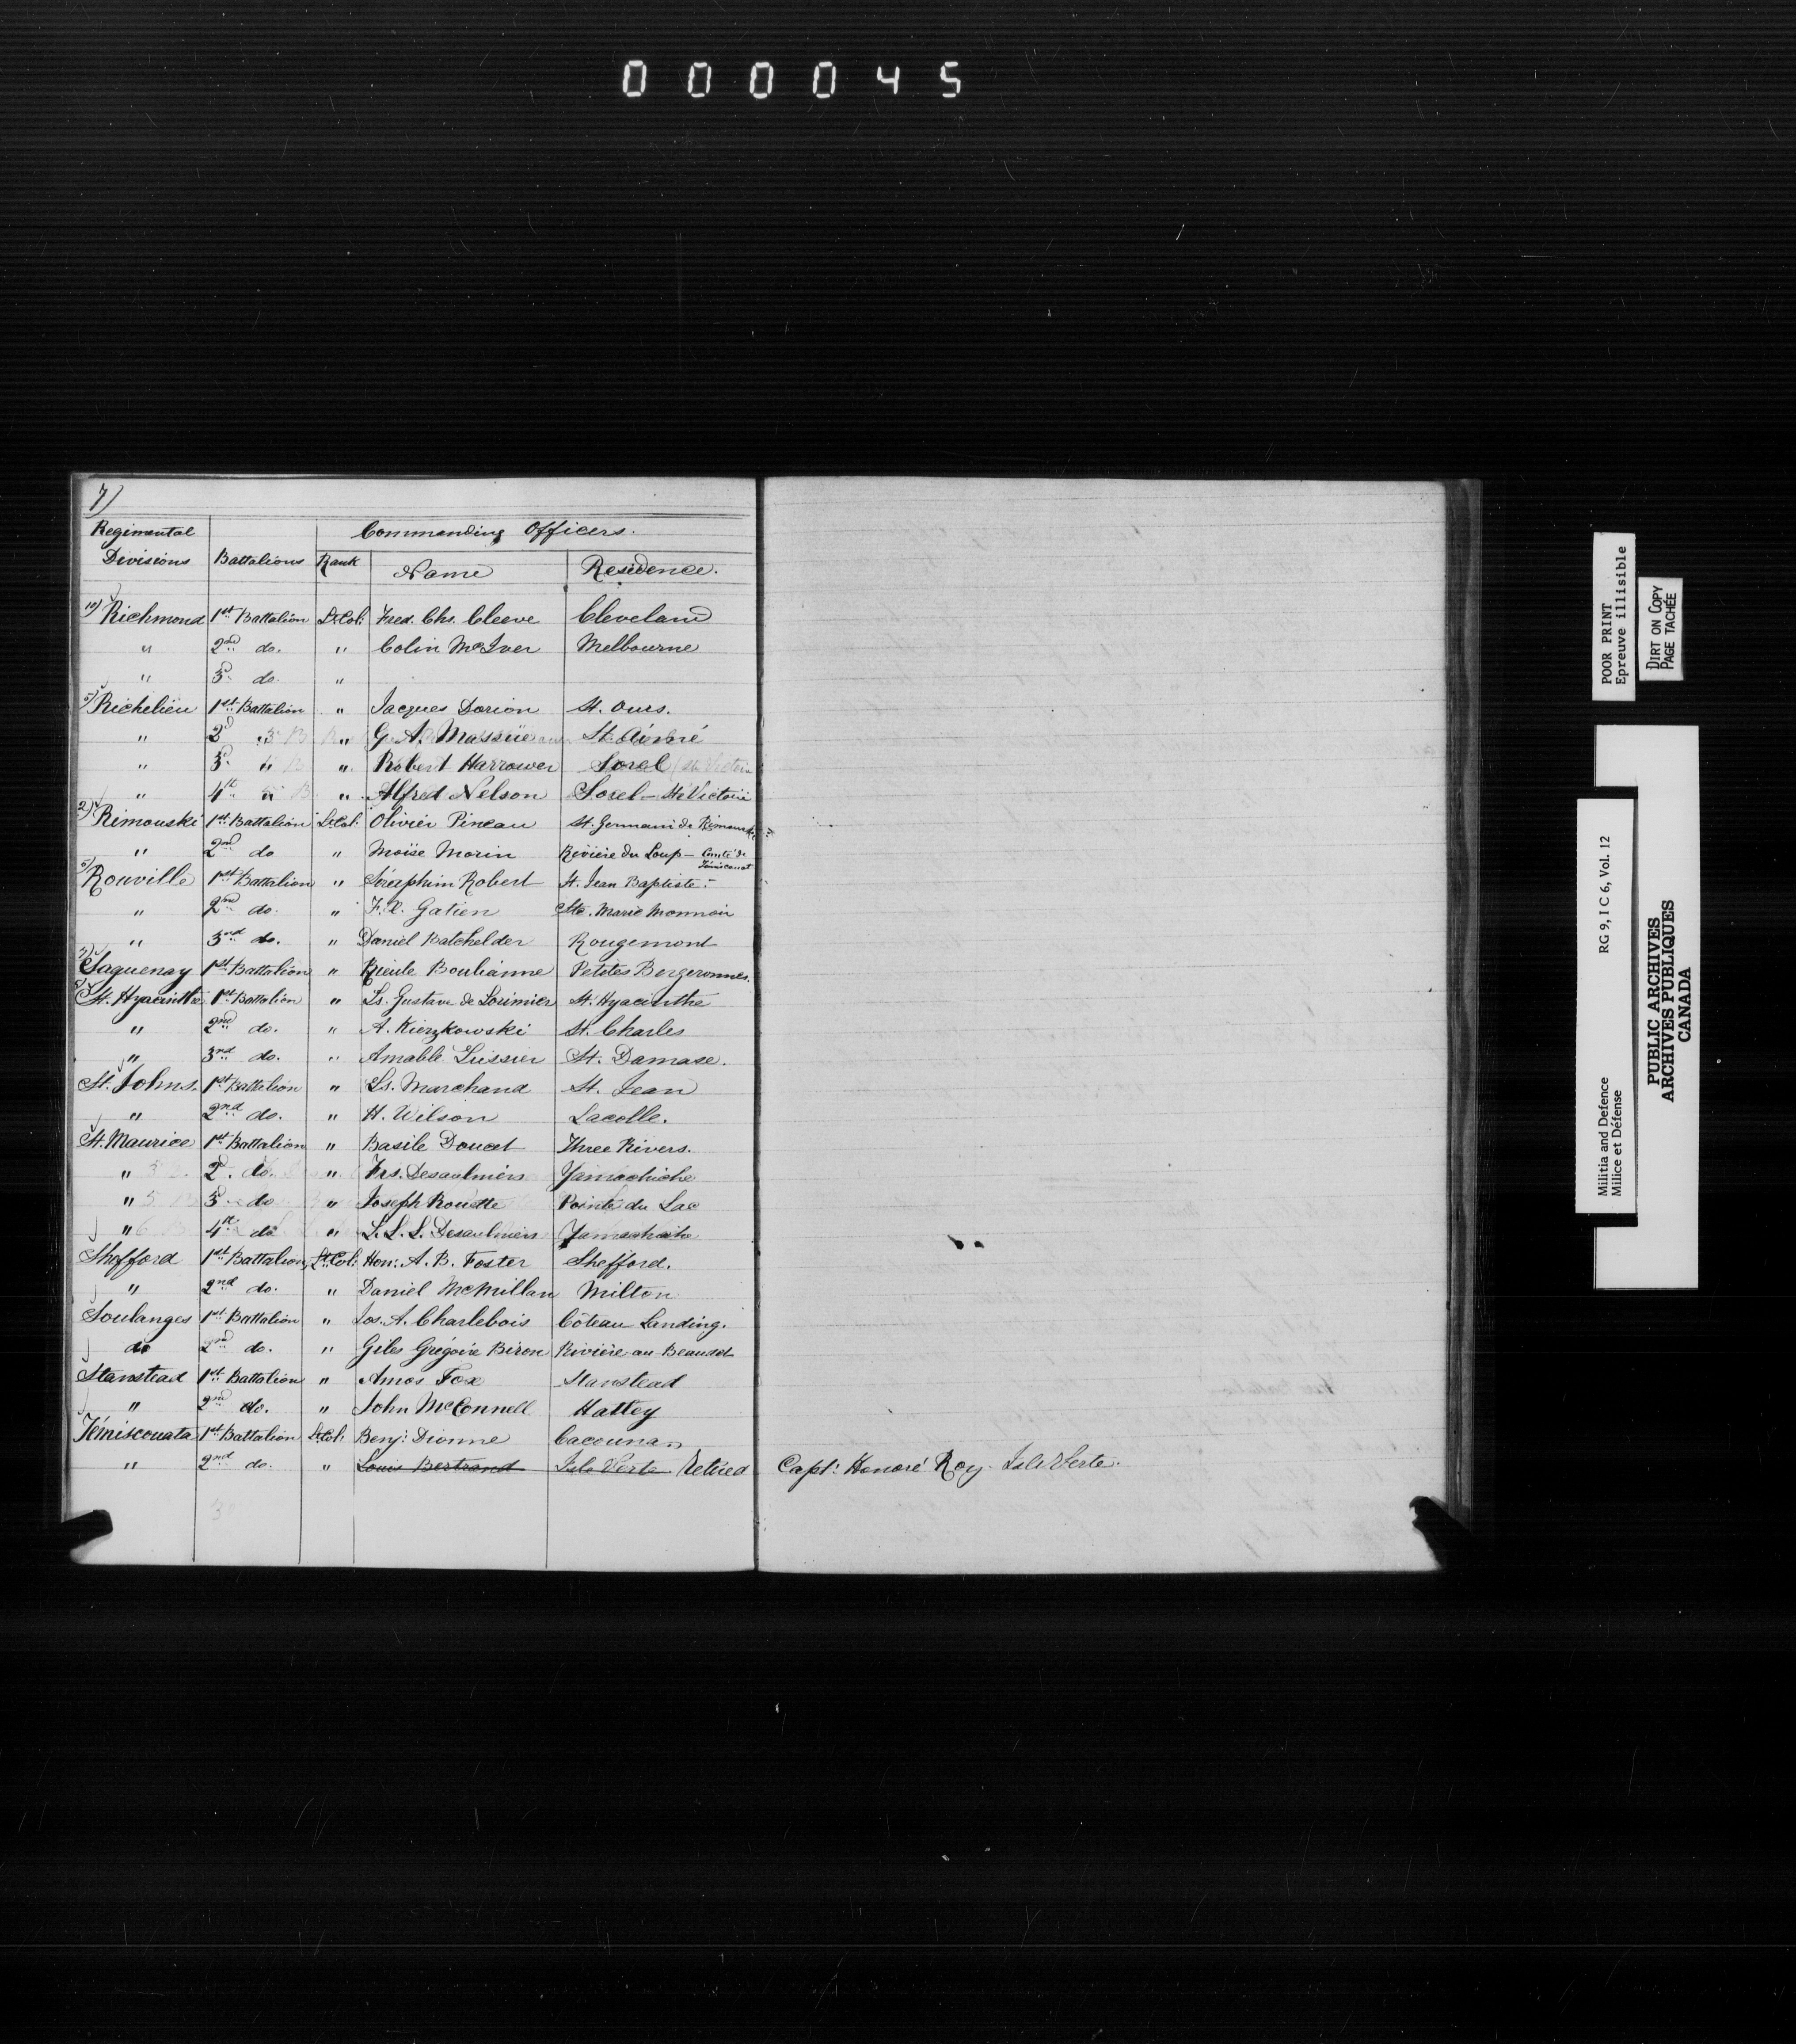 000045
7)
Regimental Divisions Battalions Commanding Officers.
Rank Name Residence.
10) Richmond 1st Battalion Lt Col: Fred. Chs. Cleeve Cleveland
" 2nd do. " Colin McIver Melbourne
" 3d do. "
5) Richelieu 1st Battalion " Jacques Dorion St. Ours.
" 2d " " G. A. Massüe St. Aimé
" 3d " " Robert Harrower Sorel
" 4th " " Alfred Nelson Sorel - Ste Victoire
2) Rimouski 1st Battalion Lt Col: Olivier Pineau St. Germain de Rimouski
" 2nd do " Moïse Morin Rivière du Loup - Comté de Témiscouat
6) Rouville 1st Battalion " Séraphim Robert St. Jean Baptiste.
" 2nd do. " F. X. Gatien Ste. Marie Monnoir
" 3rd do. " Daniel Batchelder Rougemont
Saguenay 1st Battalion " Rieule Boulianne Petites Bergeronnes.
St. Hyacinthe 1st Battalion " Ls. Gustave de Lorimier St. Hyacinthe
" 2nd do. " A. Kierzkowski St. Charles
" 3rd do. " Amable Lussier St. Damase.
St. Johns. 1st Battalion " Ls. Marchand St. Jean
" 2nd do. " H. Wilson Lacolle.
St. Maurice 1st Battalion " Basile Doucet Three Rivers.
" 2d. do. " Frs. Desaulniers Yamachiche
" 3d do " Joseph Rouette Pointe du Lac
" 4th do " L. L. L. Desaulniers Yamachiche
Shefford 1st Battalion Lt Col: Hon: A. B. Foster Shefford.
" 2nd do. " Daniel McMillan Milton
Soulanges 1st Battalion " Jos. A. Charlebois Côteau Landing.
do 2nd do. " Giles Grégoire Biron Rivière au Beaudet
Stanstead 1st Battalion " Amos Fox Stanstead
" 2nd do. " John McConnell Hatley
Témiscouata 1st Battalion Lt Col: Benj: Dionne Cacouna
" 2nd do. " Louis Bertrand Isle Verte Retired Capt: Honoré Roy. Isle Verte.
POOR PRINT
Epreuve illisible
DIRT ON COPY
PAGE TACHÉE
Militia and Defence RG 9, I C 6, Vol. 12
Milice et Défense
PUBLIC ARCHIVES
ARCHIVES PUBLIQUES
CANADA